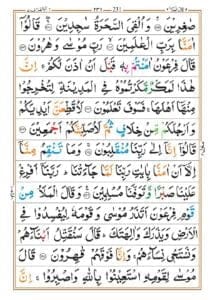 ٢٣١ 231
صٰغِرِيْنَ ۝ وَاُلْقِيَ السَّحَرَةُ سٰجِدِيْنَ ۝ قَالُوْٓا
اٰمَنَّا بِرَبِّ الْعٰلَمِيْنَ ۝ رَبِّ مُوْسٰى وَهٰرُوْنَ ۝
قَالَ فِرْعَوْنُ اٰمَنْتُمْ بِهٖ قَبْلَ اَنْ اٰذَنَ لَكُمْ ۚ اِنَّ
هٰذَا لَمَكْرٌ مَّكَرْتُمُوْهُ فِى الْمَدِيْنَةِ لِتُخْرِجُوْا
مِنْهَآ اَهْلَهَا ۚ فَسَوْفَ تَعْلَمُوْنَ ۝ لَاُقَطِّعَنَّ اَيْدِيَكُمْ
وَاَرْجُلَكُمْ مِّنْ خِلَافٍ ثُمَّ لَاُصَلِّبَنَّكُمْ اَجْمَعِيْنَ ۝
قَالُوْٓا اِنَّآ اِلٰى رَبِّنَا مُنْقَلِبُوْنَ ۝ وَمَا تَنْقِمُ مِنَّآ
اِلَّآ اَنْ اٰمَنَّا بِاٰيٰتِ رَبِّنَا لَمَّا جَآءَتْنَا ۚ رَبَّنَآ اَفْرِغْ
عَلَيْنَا صَبْرًا وَّتَوَفَّنَا مُسْلِمِيْنَ ۝ وَقَالَ الْمَلَاُ مِنْ
قَوْمِ فِرْعَوْنَ اَتَذَرُ مُوْسٰى وَقَوْمَهٗ لِيُفْسِدُوْا فِى
الْاَرْضِ وَيَذَرَكَ وَاٰلِهَتَكَ ۚ قَالَ سَنُقَتِّلُ اَبْنَآءَهُمْ
وَنَسْتَحْيٖ نِسَآءَهُمْ ۚ وَاِنَّا فَوْقَهُمْ قٰهِرُوْنَ ۝ قَالَ
مُوْسٰى لِقَوْمِهِ اسْتَعِيْنُوْا بِاللّٰهِ وَاصْبِرُوْا ۚ اِنَّ